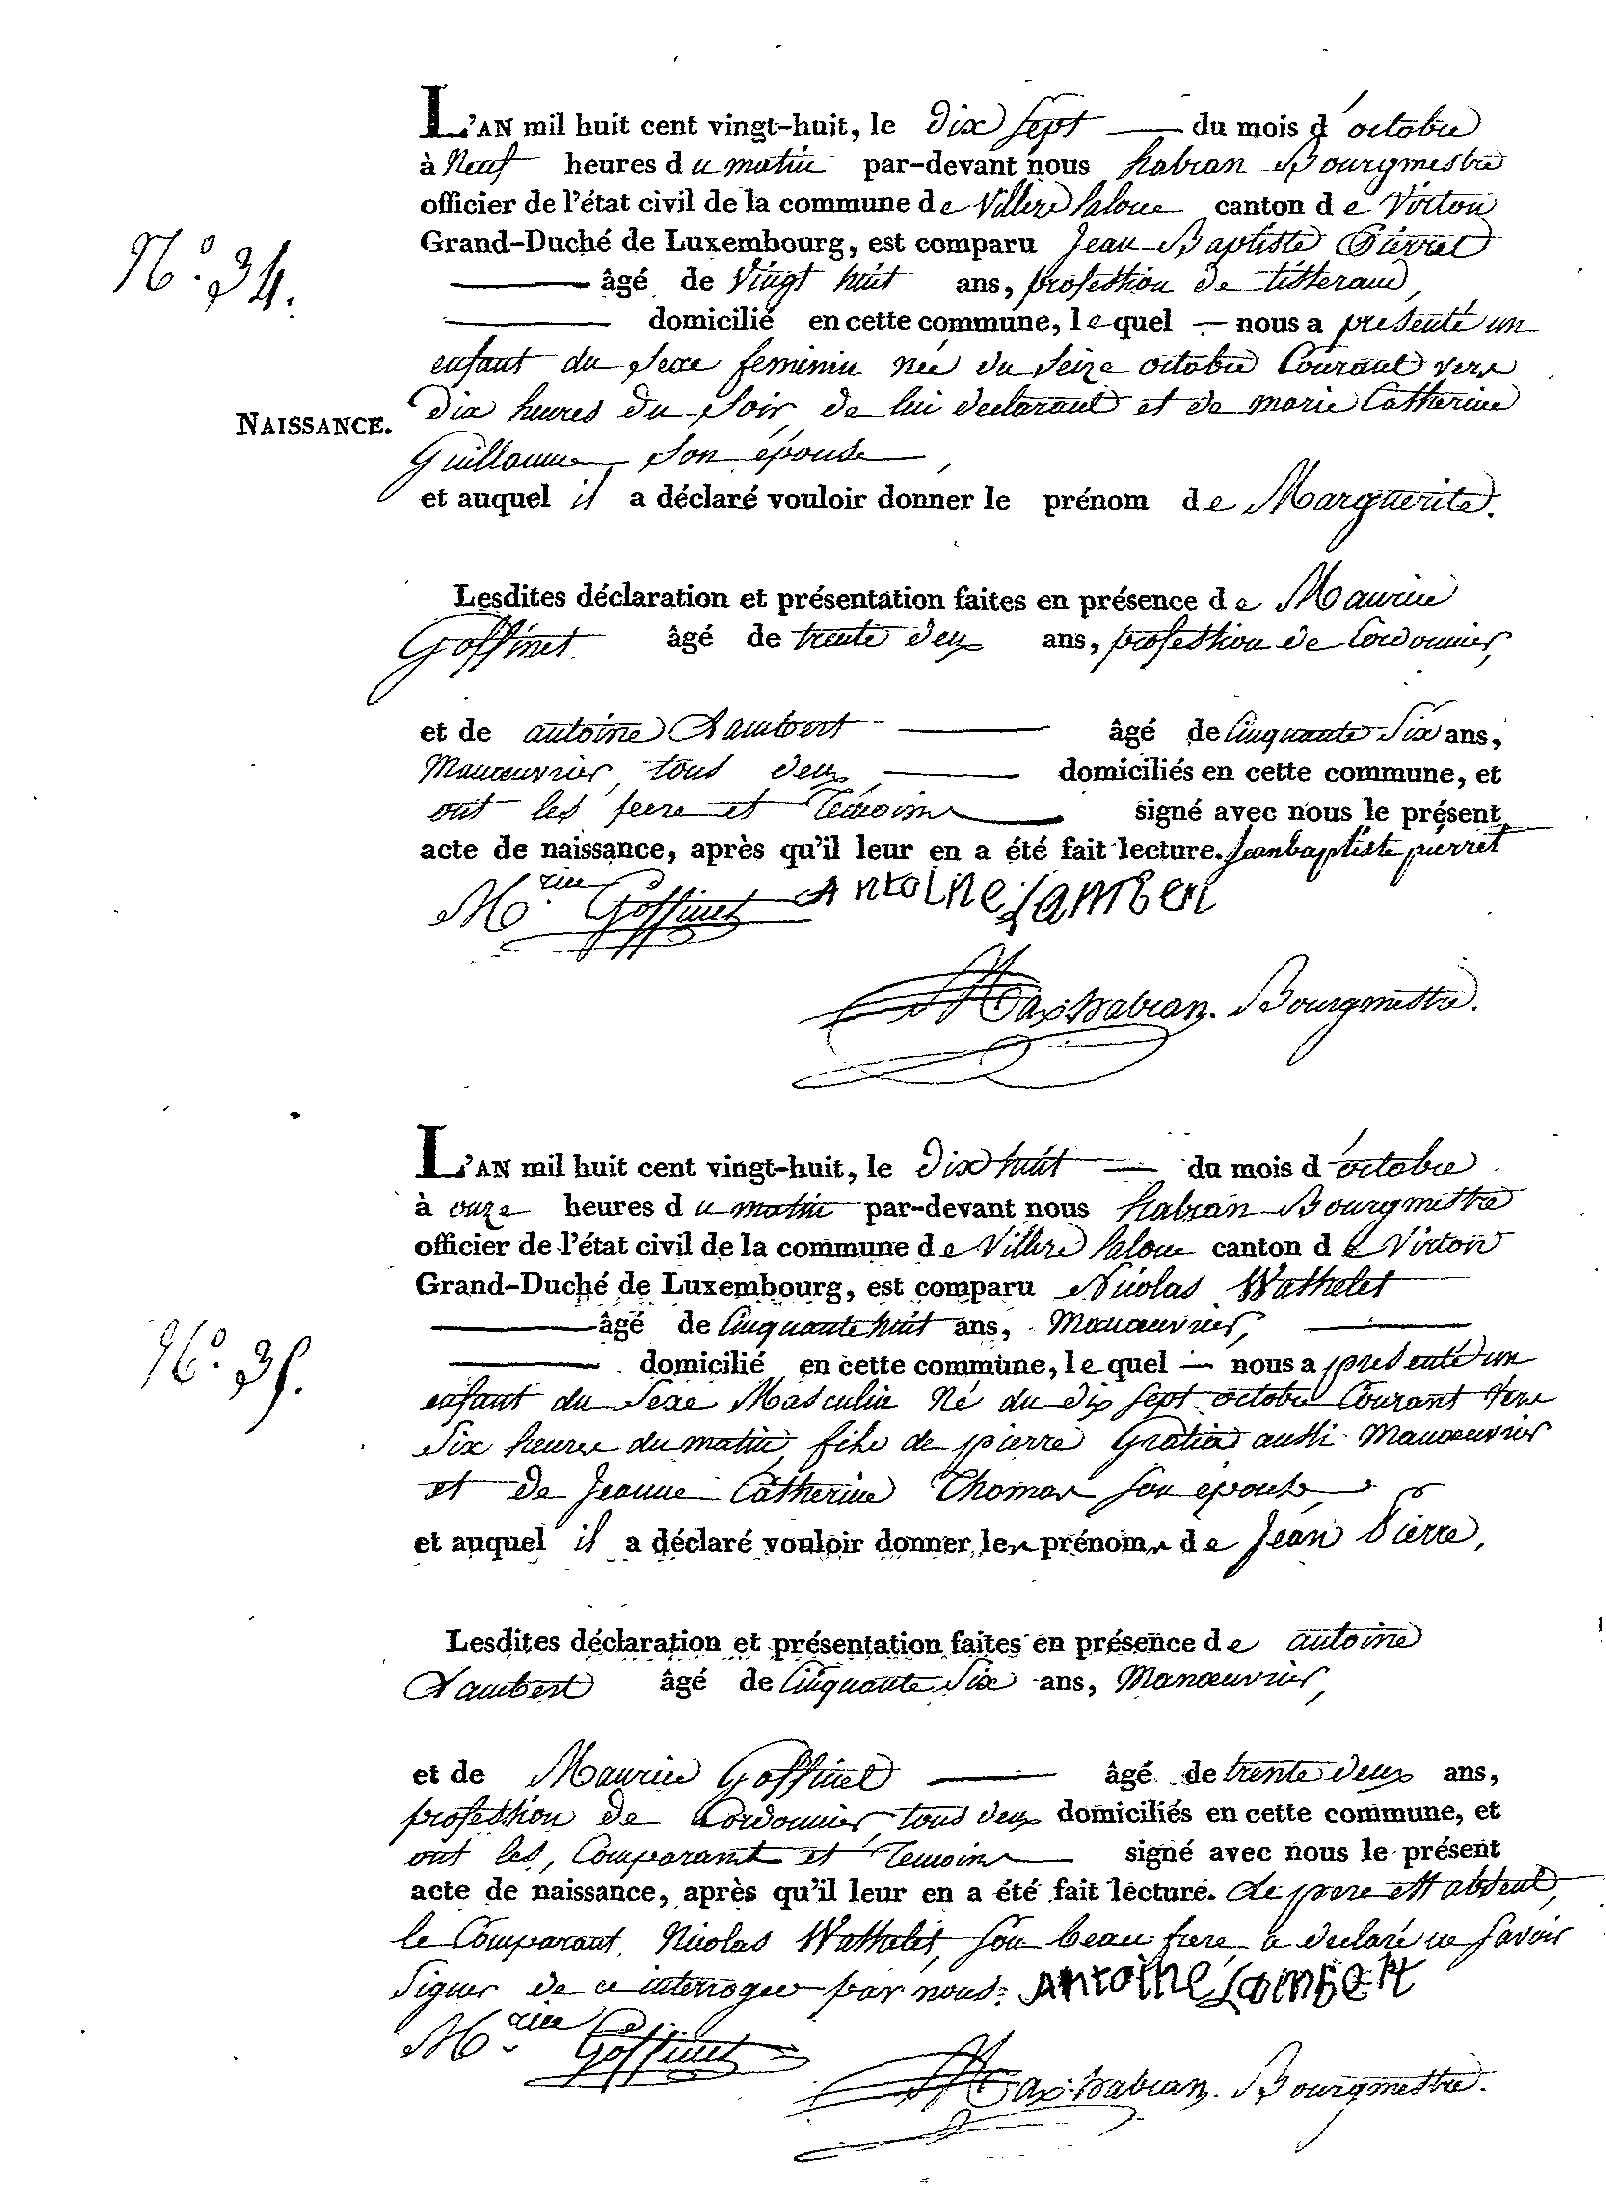 L'AN mil huit cent vingt-huit, le dix sept du mois d'octobre
à Neuf heures du matin par-devant nous habran Bourgmestre
officier de l'état civil de la commune de Villers laloue canton de Virton
Grand-Duché de Luxembourg, est comparu Jean Baptiste Pierret
N.° 34.
âgé de vingt huit ans, profession de tisserand,
domicilié en cette commune, lequel nous a présenté un
enfant du sexe feminin née du seize octobre Courant vers
dix heures du soir, de lui declarant et de marie Catherine
NAISSANCE.
Guillaume son épouse,
et auquel il a déclaré vouloir donner le prénom de Marguerite.
Lesdites déclaration et présentation faites en présence de Maurice
Goffinet âgé de trente deux ans, profession de Cordonnier,
et de antoine Lambert âgé de Cinquante Six ans,
Manœuvrier, tous deux domiciliés en cette commune, et
ont les pere et Témoins signé avec nous le présent
acte de naissance, après qu'il leur en a été fait lecture. Jeanbaptiste pierret
M.rice Goffinet Antoine Lambert
Max habran. Bourgmestre.
L'AN mil huit cent vingt-huit, le dix huit du mois d'octobre
à onze heures du matin par-devant nous habran Bourgmestre
officier de l'état civil de la commune de Villers laloue canton de Virton
Grand-Duché de Luxembourg, est comparu Nicolas Wathelet
âgé de Cinquante huit ans, Manœuvrier,
N.° 35.
domicilié en cette commune, lequel nous a présenté un
enfant du Sexe Masculin Né du dix sept octobre Courant vers
Six heures du matin, fils de pierre Gratia aussi Manœuvrier
et de Jeanne Catherine Thomas son épouse,
et auquel il a déclaré vouloir donner les prénoms de Jean Pierre,
Lesdites déclaration et présentation faites en présence de antoine
Lambert âgé de Cinquante Six ans, Manœuvrier,
et de Maurice Goffinet âgé de trente deux ans,
profession de Cordonnier, tous deux domiciliés en cette commune, et
ont les, Comparant et Temoins signé avec nous le présent
acte de naissance, après qu'il leur en a été fait lecture. Le pere est absent,
le Comparant. Nicolas Wathelet, son beau frere, a declaré ne savoir
Signer de ce interrogée par nous. Antoine Lambert
M.rice Goffinet
Max habran. Bourgmestre.